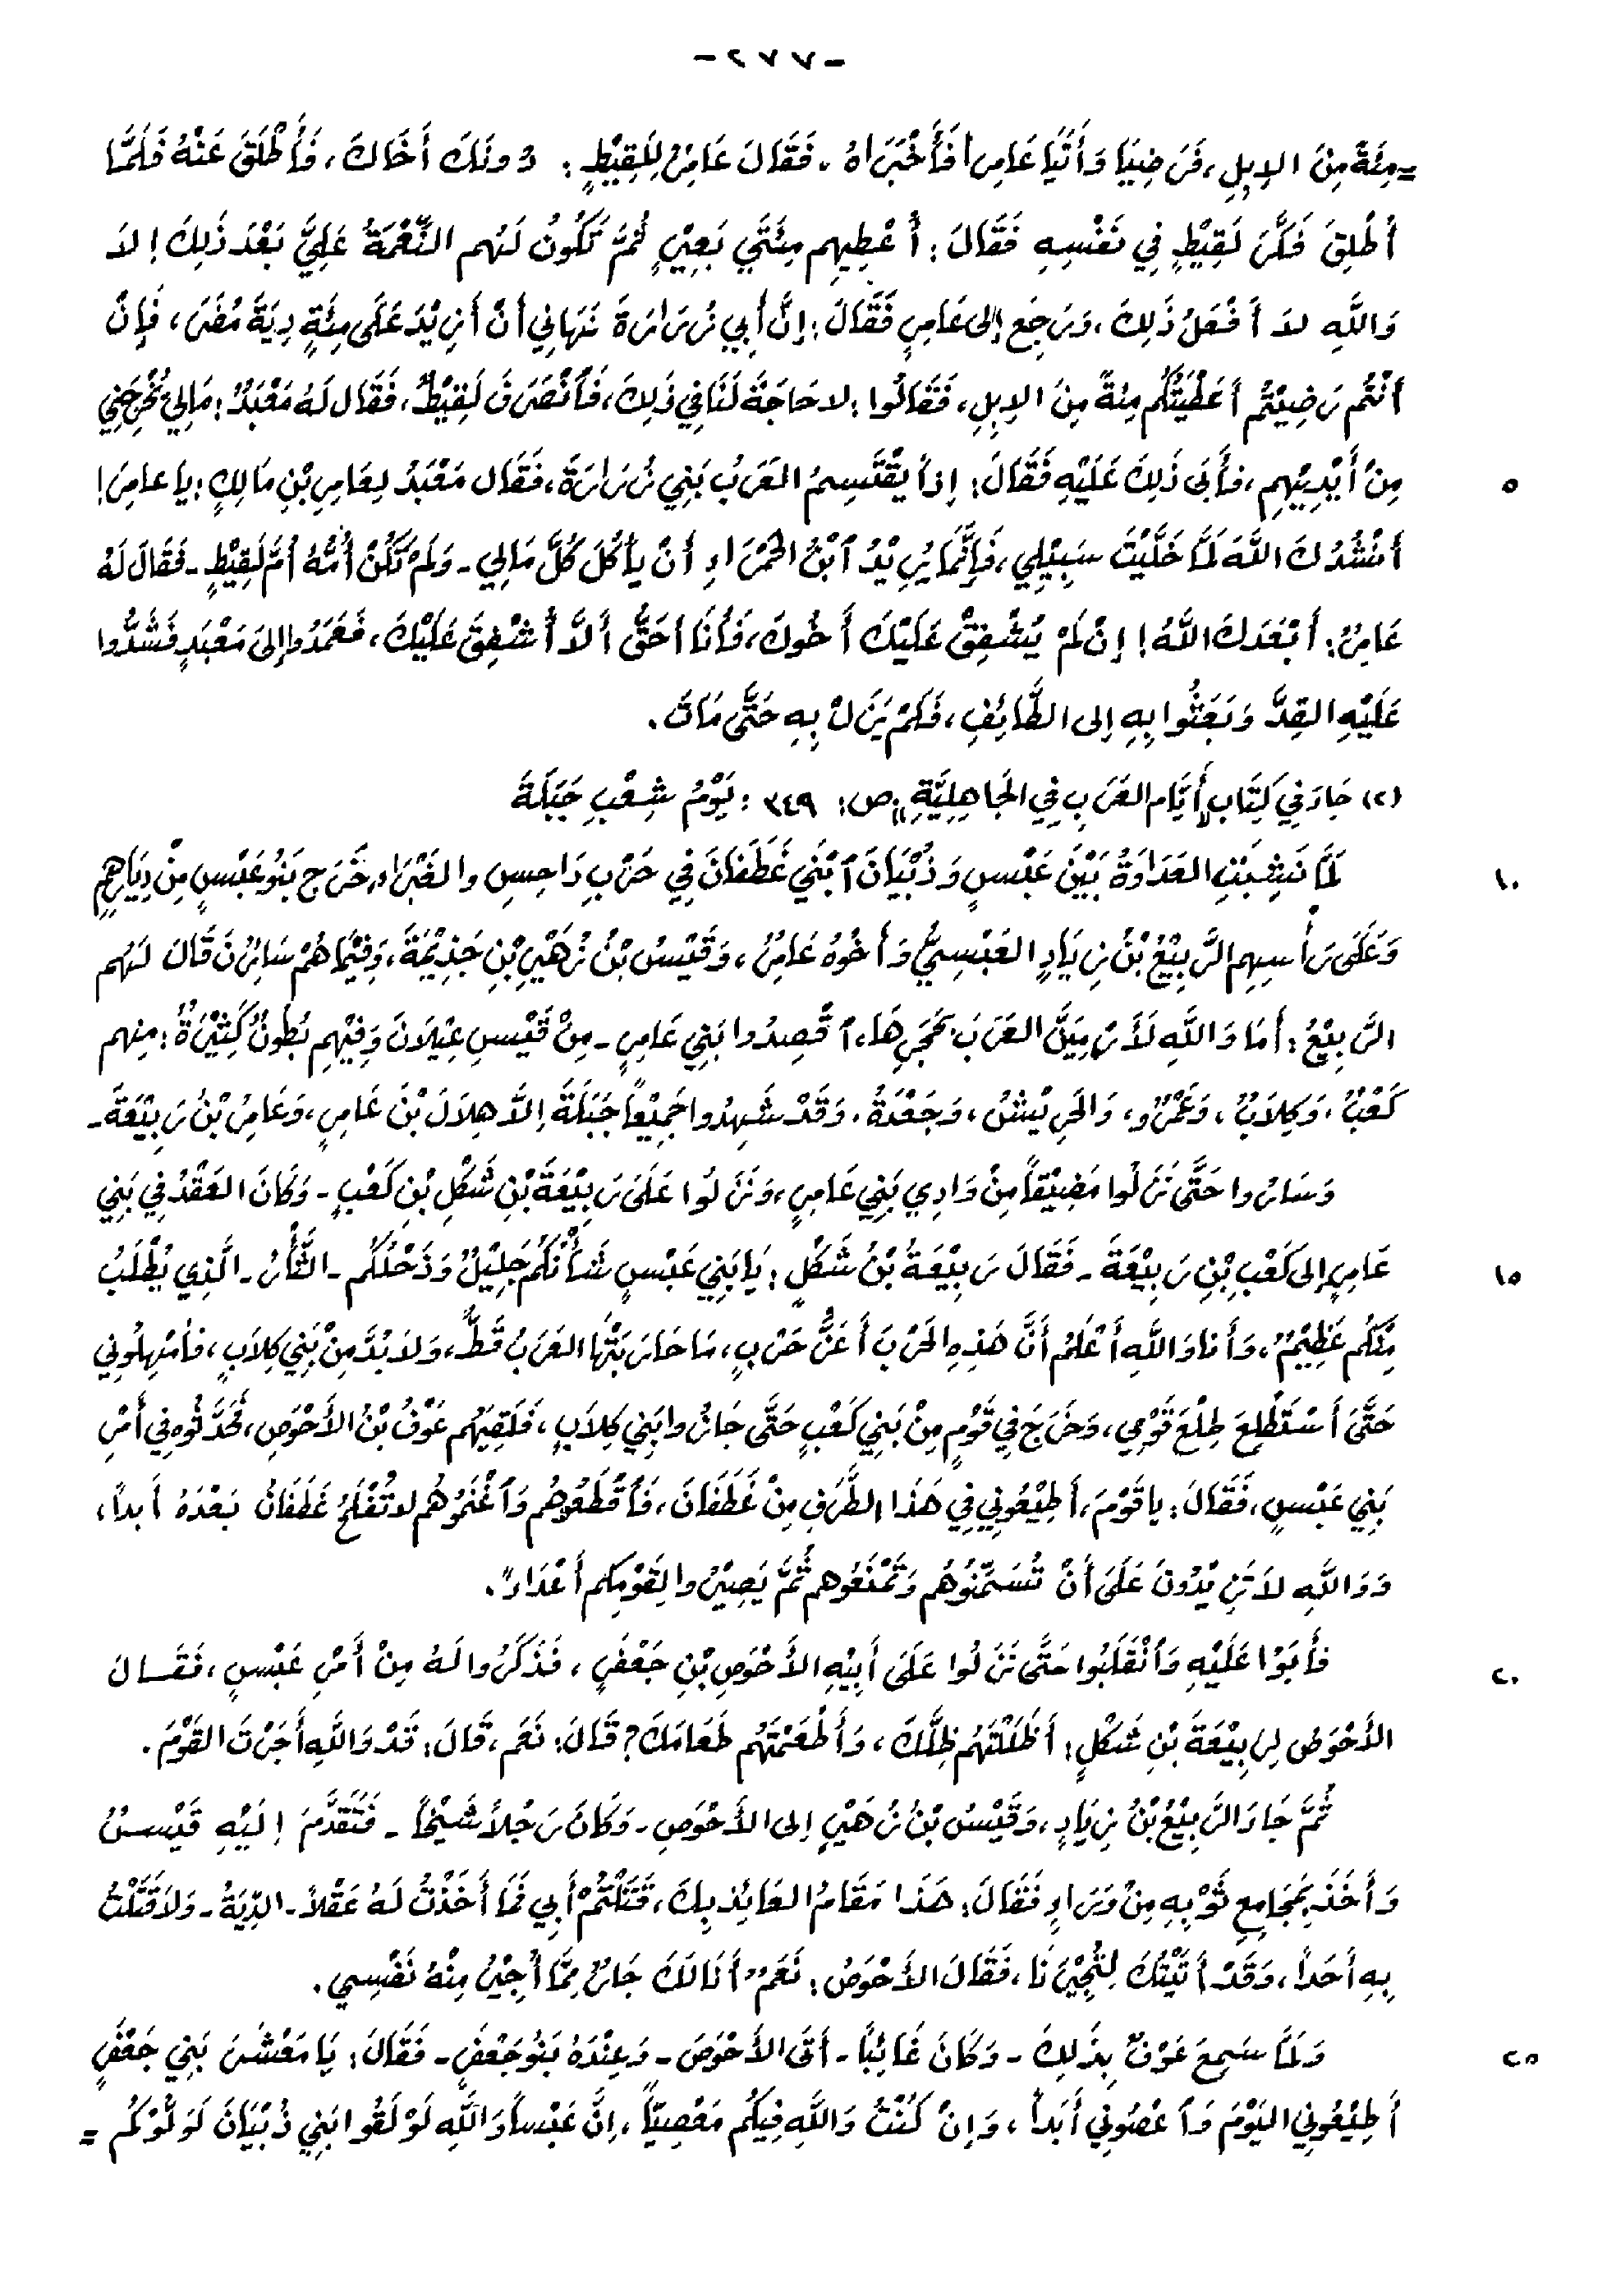 -٢٧٧-
=مِئَةً مِنَ الإبِلِ، فَرَضِيَا وَأَتَيَا عَامِراً فَأَخْبَرَاهُ، فَقَالَ عَامِرٌ لِلَقِيْطٍ: دُونَكَ أَخَاكَ، فَأَطْلَقَ عَنْهُ فَلَمَّا
أُطْلِقَ فَكَّرَ لَقِيْطٍ فِي نَفْسِهِ فَقَالَ: أُعْطِيهِم مِئَتَيْ بَعِيْرٍ ثُمَّ تَكُونُ لَهُم النِّعْمَةُ عَلَيَّ بَعْدَ ذَلِكَ! لاَ
وَاللَّهِ لاَ أَفْعَلُ ذَلِكَ، وَرَجِعَ إلى عَامِرٍ فَقَالَ: إنَّ أَبِي زُرَارَةَ نَهَانِي أنْ أَزِيْدَ عَلَى مِئَةٍ دِيَةَ مُضَرَ، فَإِنْ
أَنْتُم رَضِيْتُم أَعْطَيْتُكُم مِئَةً مِنَ الإبِلِ، فَقَالُوا: لا حَاجَةَ لَنَا فِي ذَلِكَ، فَٱنْصَرَفَ لَقِيْطٌ، فَقَال لَهُ مَعْبَدٌ: مَالِي يُخْرِجُنِي
مِنْ أَيْدِيْهِم، فَأَبَى ذَلِكَ عَلَيْهِ فَقَالَ: إذاً يَقْتَسِمُ العَرَبُ بَنِي زُرَارَةَ، فَقَال مَعْبَدُ لِعَامِرِ بْنِ مَالِكٍ: يا عامِرَ!
٥
أَنْشُدُكَ اللَّهَ لَمَّا خَلَّيْتَ سَبِيْلِي، فَإِنَّمَا يُرِيْدُ ٱبْنُ الحَمْرَاءِ أَنْ يَأْكُلَ كُلَّ مَالِي - وَلَمْ تَكُنْ أُمُّهُ أُمَّ لَقِيْطٍ - فَقَالَ لَهُ
عَامِرٌ: أَبْعَدَكَ اللَّهُ! إنْ لَمْ يُشْفِقْ عَلَيْكَ أَخُوكَ، فَأَنَا أَحَقُّ أَلاَّ أُشْفِقَ عَلَيْكَ، فَعَمَدُوا إِلَى مَعْبَدٍ فَشَدُّوا
عَلَيْهِ القِدَّ وَبَعَثُوا بِهِ إلى الطَّائِفِ، فَلَمْ يَزَلْ بِهِ حَتَّى مَاتَ.
(٢) جَاءَ فِي كِتَابِ "أَيَّام العَرَبِ فِي الجَاهِلِيَّةِ" ص: ٣٤٩ : يَوْمُ شِعْبِ جَبَلَةَ
لَمَّا نَشِبَتِ العَدَاوَةُ بَيْنَ عَبْسٍ وَذُبْيَانَ ٱبْنَي غَطَفَانَ فِي حَرْبِ دَاحِسِ والغَبْرَاءِ، خَرَج بَنُو عَبْسٍ مِنْ دِيَارِهِم
١٠
وَعَلَى رَأْسِهِم الرَّبِيْعُ بْنُ زِيَادٍ العَبْسِيُّ وَأَخُوهُ عَامِرٌ، وَقَيْسُ بْنُ زُهَيْرِ بْنِ جَذِيْمَةَ، وَفِيْمَا هُمْ سَائِرُنَ قَالَ لَهُم
الرَّبِيْعُ: أَمَا وَاللَّهِ لَأَرْمِيَنَّ العَرَبَ بِحَجَرِهَا، ٱقْصِدُوا بَنِي عَامِرٍ - مِنْ قَيْسِ عِيْلَانَ وَفِيْهِم بُطُونٌ كَثِيْرَةٌ: مِنهم
كَعْبٌ، وَكِلَابٌ، وَعَمْرٌو، وَالحَرِيْشُ، وَجَعْدَةُ. وَقَدْ شَهِدُوا جَمِيْعاً جَبَلَةَ إلاَّ هِلَالَ بْنَ عَامِرٍ، وَعَامِرُ بْنُ رَبِيْعَةَ -
وَسَارُوا حَتَّى نَزَلُوا مَضِيْقاً مِنْ وَادِي بَنِي عَامِرٍ، وَنَزَلُوا عَلَى رَبِيْعَةَ بْنِ شَكْلِ بْنِ كَعْبٍ - وَكَانَ العَقْدُ فِي بَنِي
عَامِرٍ إلى كَعْبِ بْنِ رَبِيْعَةَ - فَقَالَ رَبِيْعَةُ بْنُ شَكْلٍ: يَا بَنِي عَبْسٍ شَأْنُكُم جَلِيْلٌ وَذَحْلُكُم - الثَّأْرُ - الَّذِي يُطْلَبُ
١٥
مِنْكُم عَظِيْمٌ، وَأَنا وَاللَّهِ أَعْلَمُ أَنَّ هَذِهِ الحَرْبَ أَعَزُّ حَرْبٍ، مَا حَارَبَتْهَا العَرَبُ قَطُّ، وَلاَ بُدَّ مِنْ بَنِي كِلَابٍ، فَأَمْهِلُونِي
حَتَّى أَسْتَطْلِعَ طِلْعَ قَوْمِي، وَخَرَجَ فِي قَوْمٍ مِنْ بَنِي كَعْبٍ حَتَّى جَاؤُوا بَنِي كِلَابٍ، فَلَقِيَهُم عَوْفُ بْنُ الأَحْوَصِ، فَحَدَّثُوه فِي أَمْرِ
بَنِي عَبْسٍ، فَقَالَ: يا قَوْمِ، أَطِيْعُونِي فِي هَذَا الطَّرَفِ مِنْ غَطَفَانَ، فَٱقْطَعُوهُم وَٱغْنَمُوهُم لا تُفْلِحُ غَطَفَانُ بَعْدَهُ أَبداً،
وَوَاللَّهِ لاَ تَزِيْدُونَ عَلَى أَنْ تُسَمِّنُوهُم وَتَمْنَعُوهم ثُمَّ يَصِيْرُوا لِقَوْمِكم أَعْدَاءً.
فَأَبَوْا عَلَيْهِ وَٱنْقَلَبُوا حَتَّى نَزَلُوا عَلَى أَبِيْهِ الأَحْوَصِ بْنِ جَعْفَرٍ، فَذَكَرُوا لَهُ مِنْ أَمْرِ عَبْسٍ، فَقَالَ
٢٠
الأَحْوَصُ لِرَبِيْعَةَ بْنِ شَكْلٍ: أَظْلَلْتَهُم ظِلَّكَ، وَأَطْعَمْتَهُم طَعَامَكَ؟ قَالَ: نَعَم، قَالَ: قَدْ وَاللَّهِ أَجَرْتَ القَوْمَ.
ثُمَّ جَاءَ الرَّبِيْعُ بْنُ زِيَادٍ، وَقَيْسُ بْنُ زُهَيْرٍ إلى الأَحْوَصِ - وَكَانَ رَجُلاً شَيْخاً - فَتَقَدَّمَ إلَيْهِ قَيْسٌ
وَأَخَذَ بِمَجَامِعِ ثَوْبِهِ مِنْ وَرَاءٍ فَقَالَ: هَذَا مَقَامُ العَائِذِ بِكَ، قَتَلْتُمْ أَبِي فَمَا أَخَذْتُ لَهُ عَقْلاً - الدِّيَةُ - وَلاَ قَتَلْتُ
بِهِ أَحَداً، وَقَدْ أَتَيْتُكَ لِتُجِيْرَنَا، فَقَالَ الأَحْوَصُ: نَعَمْ أَنَا لَكَ جَارٌ مِمَّا أُجِيْرُ مِنْهُ نَفْسِي.
وَلَمَّا سَمِعَ عَوْفٌ بِذَلِكَ - وَكَانَ غَائِباً - أَتَى الأَحْوَصَ - وَعِنْدَهُ بَنُو جَعْفَرٍ - فَقَالَ: يَا مَعْشَرَ بَنِي جَعْفَرٍ
٢٥
أَطِيْعُونِي اليَوْمَ وَٱعْصُونِي أَبَداً، وَإنْ كُنْتُ وَاللَّهِ فِيكُم مَعْصِيّاً، إنَّ عَبْساً وَاللَّهِ لَوْ لَقُوا بَنِي ذُبْيَانَ لَوَلَّوْكُم =